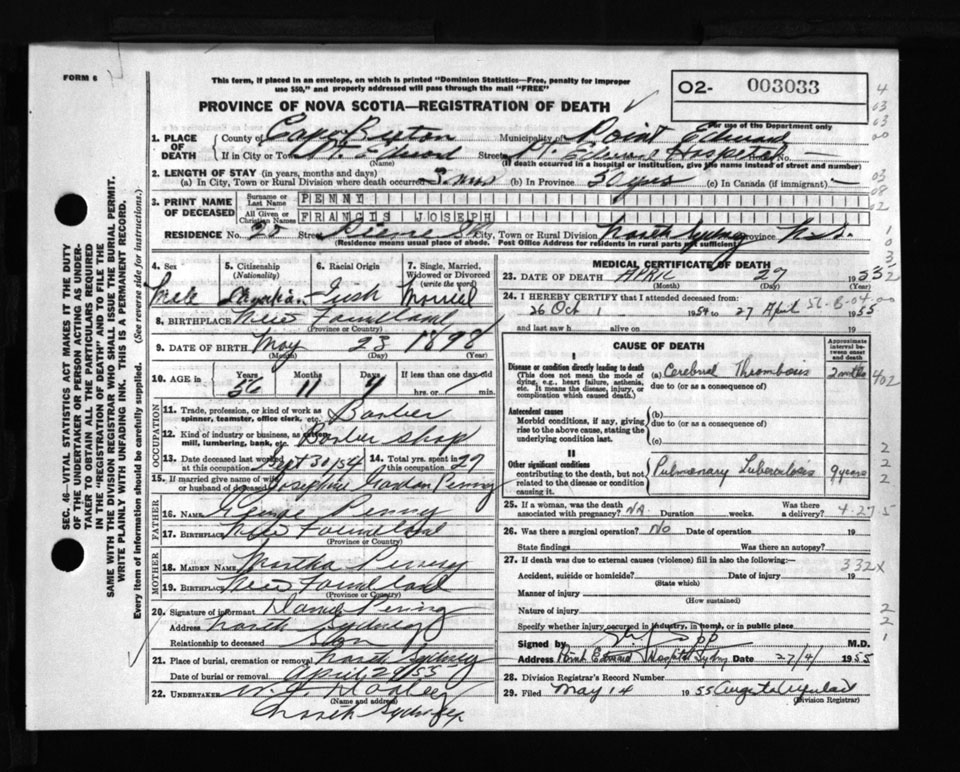 FORM 6
This form, if placed in an envelope, on which is printed "Dominion Statistics—Free, penalty for improper
use $50," and properly addressed will pass through the mail "FREE"
PROVINCE OF NOVA SCOTIA—REGISTRATION OF DEATH
O2- 003033
For use of the Department only
1. PLACE OF DEATH County of Cape Breton Municipality of Point Edward
If in City or Town Pt. Edward Street Hospital No. —
(Name) (If death occurred in a hospital or institution, give the name instead of street and number)
2. LENGTH OF STAY (in years, months and days)
(a) In City, Town or Rural Division where death occurred (b) In Province 30 yrs (c) In Canada (if immigrant) —
3. PRINT NAME OF DECEASED
Surname or Last Name PENNY
All Given or Christian Names FRANCIS JOSEPH
RESIDENCE No. 25 Street Pierce St. City, Town or Rural Division North Sydney Province N.S.
(Residence means usual place of abode. Post Office Address for residents in rural parts not sufficient)
4. Sex Male
5. Citizenship (Nationality)
6. Racial Origin Irish
7. Single, Married, Widowed or Divorced (write the word) Married
8. BIRTHPLACE New Foundland
(Province or Country)
9. DATE OF BIRTH May 23 1898
(Month) (Day) (Year)
10. AGE in Years 56 Months 11 Days 4 If less than one day old
hrs. or min.
OCCUPATION
11. Trade, profession or kind of work as spinner, teamster, office clerk, etc. Barber
12. Kind of industry or business, as mill, lumbering, bank, etc. Barber Shop
13. Date deceased last worked at this occupation Sept 30/54 14. Total yrs. in this occupation 29
15. If married give name of wife or husband of deceased Josephine Penny
FATHER
16. Name George Penny
17. Birthplace New Foundland
(Province or Country)
MOTHER
18. MAIDEN NAME Martha Penny
19. BIRTHPLACE New Foundland
(Province or Country)
20. Signature of informant Penny
Address North Sydney
Relationship to deceased Son
21. Place of burial, cremation or removal North Sydney
Date of burial or removal April 29/55
22. UNDERTAKER
(Name and address)
North Sydney
MEDICAL CERTIFICATE OF DEATH
23. DATE OF DEATH APRIL 27 1955
(Month) (Day)
24. I HEREBY CERTIFY that I attended deceased from:
26 Oct 1954 to 27 April 1955
and last saw h alive on 19
CAUSE OF DEATH
Approximate interval between onset and death
I
Disease or condition directly leading to death
(This does not mean the mode of dying, e.g., heart failure, asthenia, etc. It means the disease, injury, or complication which caused death.)
(a) Cerebral Thrombosis 2 mths
due to (or as a consequence of)
402
Antecedent causes
Morbid conditions, if any, giving rise to the above cause, stating the underlying condition last.
(b)
due to (or as a consequence of)
(c)
II
Other significant conditions
contributing to the death, but not related to the disease or condition causing it.
Pulmonary Tuberculosis 9 years
25. If a woman, was the death associated with pregnancy? NA Duration weeks. Was there a delivery?
26. Was there a surgical operation? No Date of operation 19
State findings Was there an autopsy?
27. If death was due to external causes (violence) fill in also the following: 332X
Accident, suicide or homicide? Date of injury 19
(State which)
Manner of injury
(How sustained)
Nature of injury
Specify whether injury occurred in industry, in home, or in public place
Signed by M.D.
Address Point Edward Hospital Sydney Date 27/4/ 1955
28. Division Registrar's Record Number
29. Filed May 14 1955
(Division Registrar)
SEC. 46—VITAL STATISTICS ACT MAKES IT THE DUTY
OF THE UNDERTAKER OR PERSON ACTING AS UNDERTAKER
TO OBTAIN ALL THE PARTICULARS REQUIRED
IN THE "REGISTRATION OF DEATH" AND TO FILE THE
SAME WITH THE DIVISION REGISTRAR WHO SHALL ISSUE THE BURIAL PERMIT.
WRITE PLAINLY WITH UNFADING INK. THIS IS A PERMANENT RECORD.
Every item of information should be carefully supplied. (See reverse side for instructions).